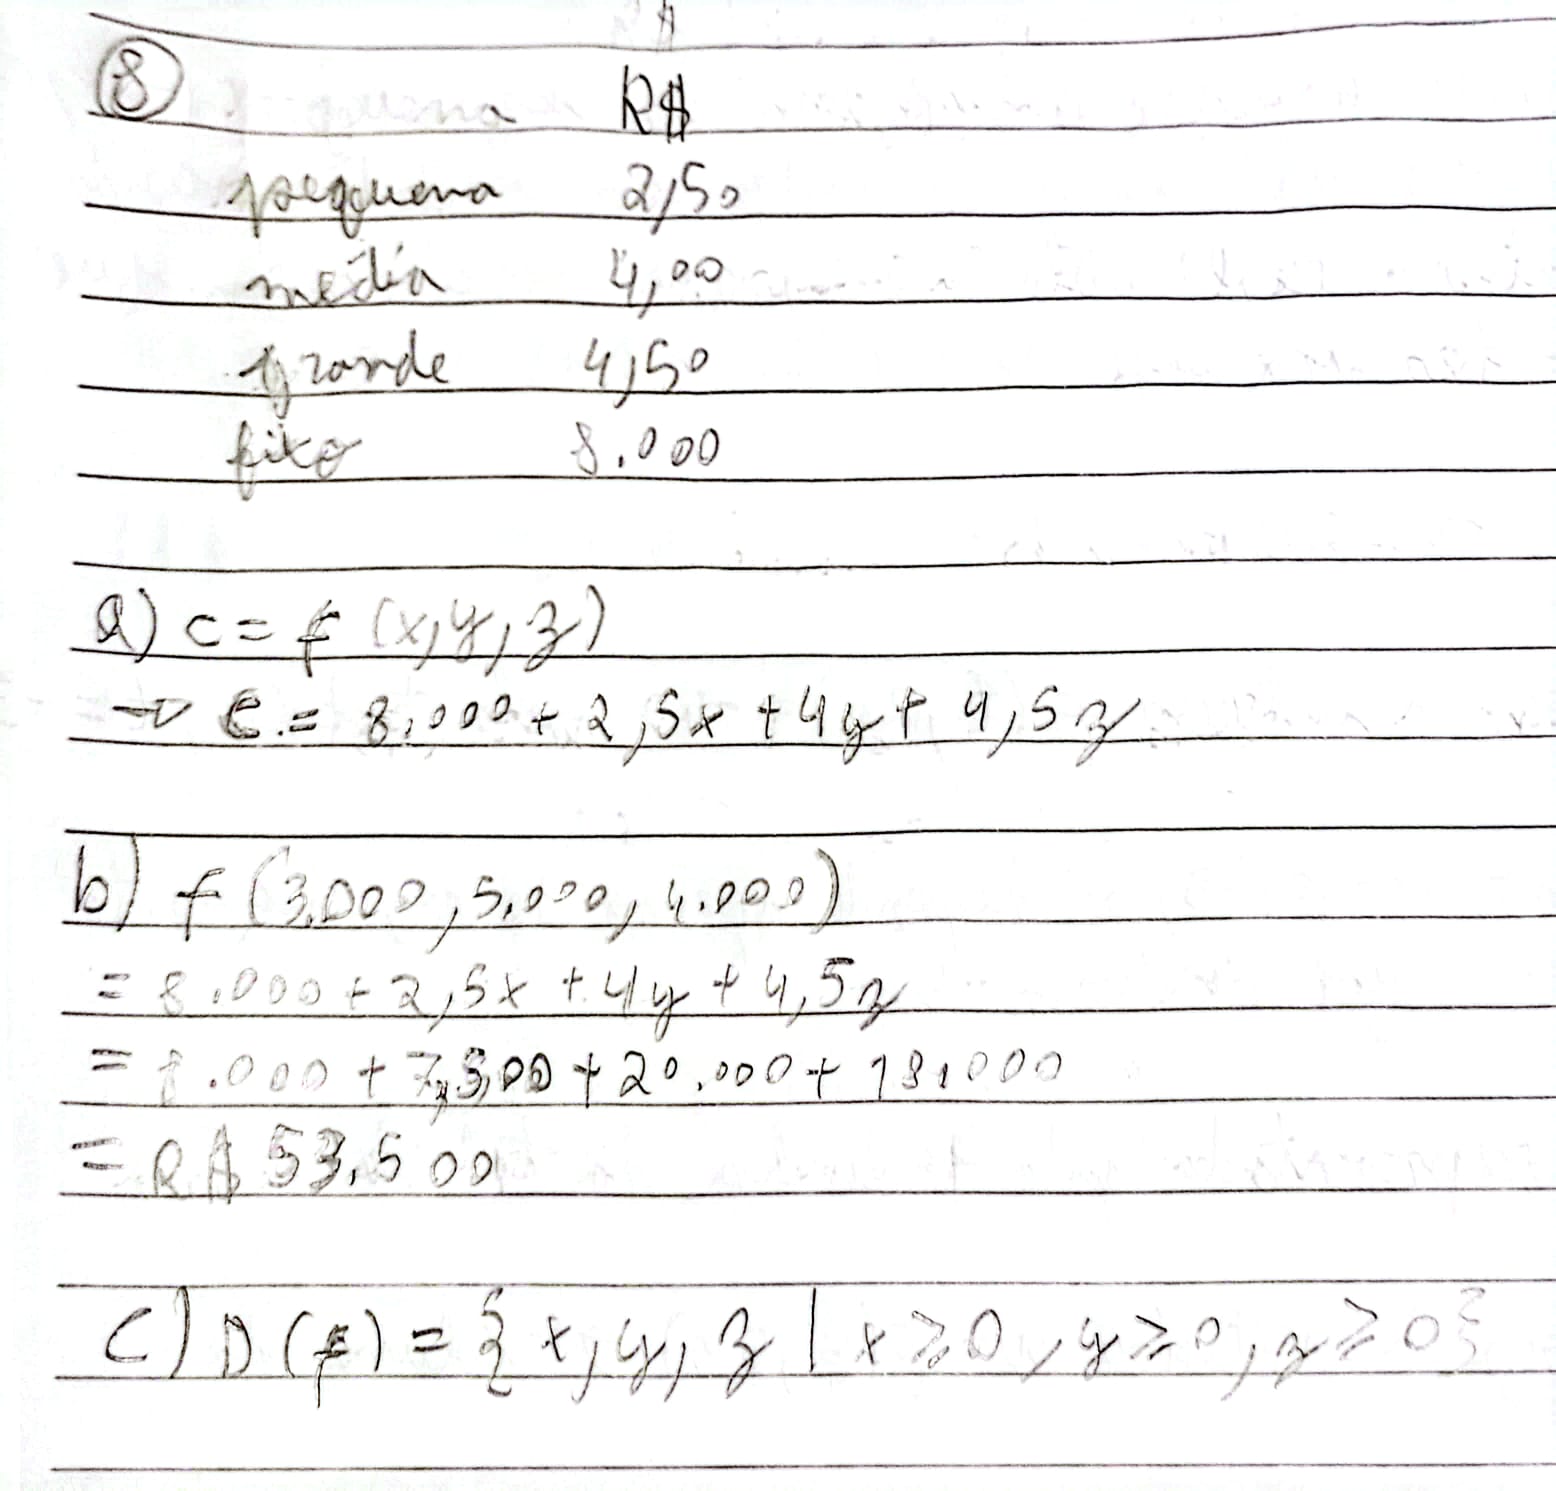 8
R$
pequena 2,50
média 4,00
grande 4,50
fixo 8.000
a) c = f (x, y, z)
→ C = 8.000 + 2,5x + 4y + 4,5z
b) f (3.000, 5.000, 4.000)
= 8.000 + 2,5x + 4y + 4,5z
= 8.000 + 7.500 + 20.000 + 18.000
= R$ 53.500
c) D (f) = { x, y, z | x ≥ 0, y ≥ 0, z ≥ 0 }